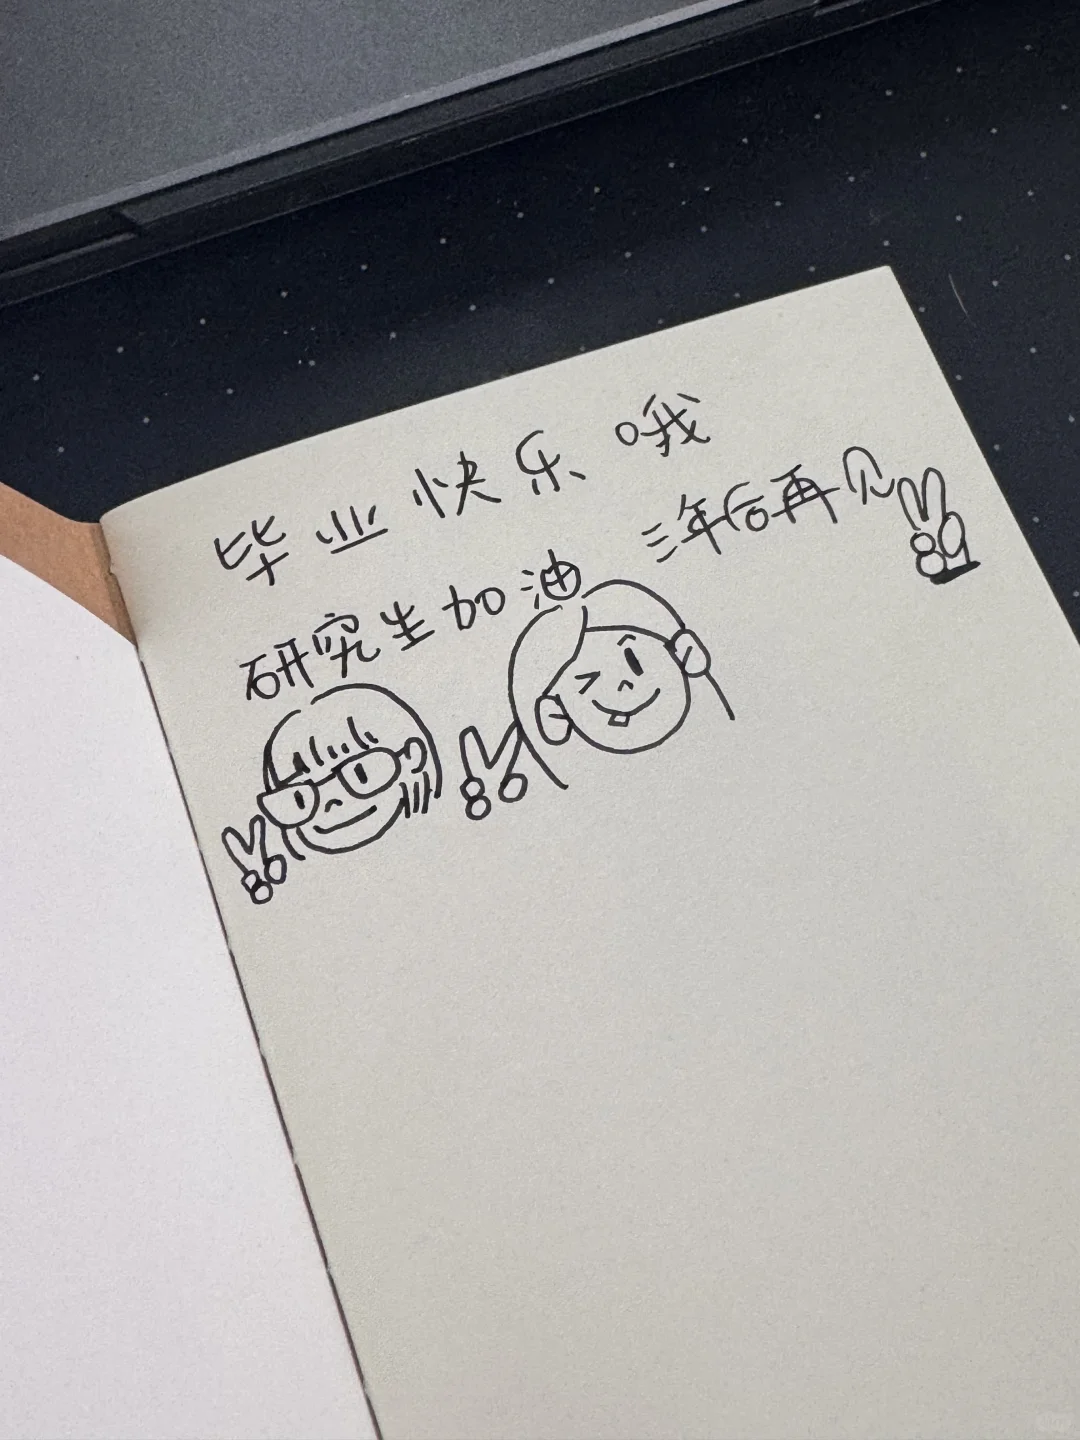 毕业快乐哦
研究生加油
三年后再见